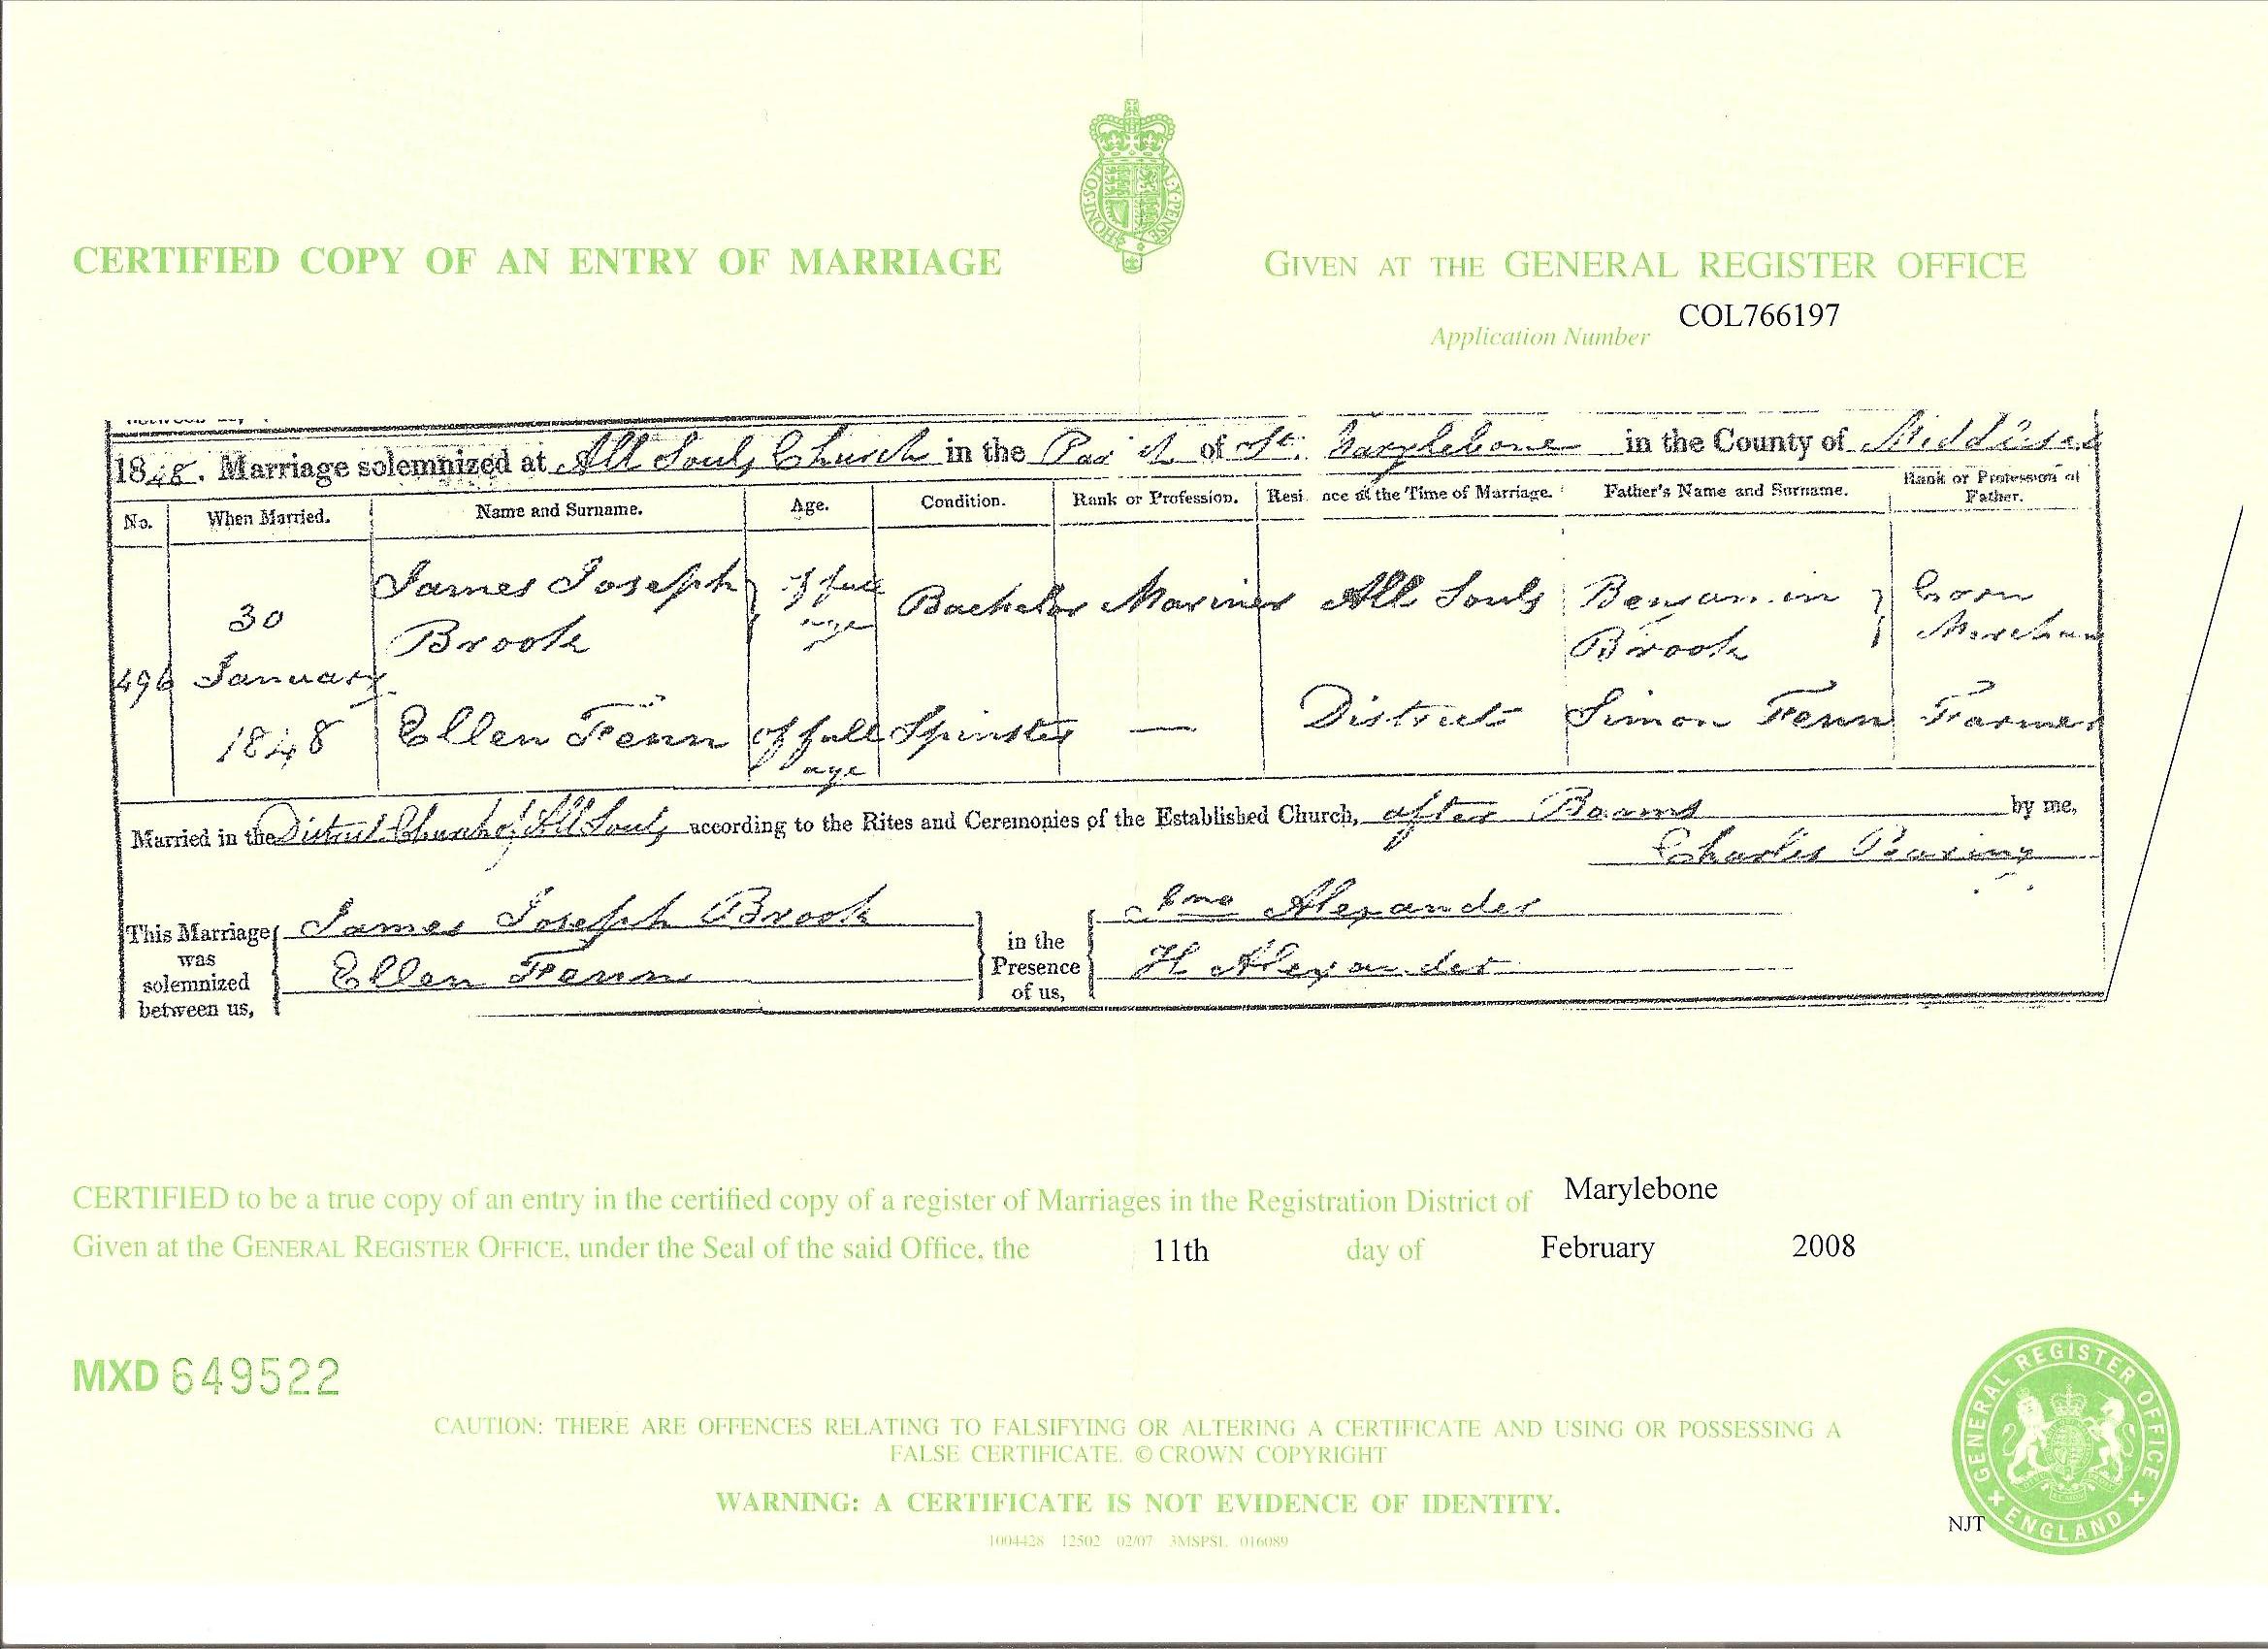 HONI·SOIT AL·Y·PENSE
CERTIFIED COPY OF AN ENTRY OF MARRIAGE
GIVEN AT THE GENERAL REGISTER OFFICE
COL766197
Application Number
1848. Marriage solemnized at All Souls Church in the Parish of St. Marylebone in the County of Middlesex
No. When Married. Name and Surname. Age. Condition. Rank or Profession. Resi nce at the Time of Marriage. Father's Name and Surname. Rank or Profession of Father.
496 30 January 1848
James Joseph Brook of full age Bachelor Mariner All Souls Benjamin Brook Corn Merchan
Ellen Fenn of full age Spinster — District Simon Fenn Farmer
Married in the District Church of All Souls according to the Rites and Ceremonies of the Established Church, after Banns by me,
Charles
This Marriage was solemnized between us, James Joseph Brook
Ellen Fenn
in the Presence of us, Alexander
H Alexander
CERTIFIED to be a true copy of an entry in the certified copy of a register of Marriages in the Registration District of Marylebone
Given at the GENERAL REGISTER OFFICE, under the Seal of the said Office, the 11th day of February 2008
MXD 649522
CAUTION: THERE ARE OFFENCES RELATING TO FALSIFYING OR ALTERING A CERTIFICATE AND USING OR POSSESSING A
FALSE CERTIFICATE. © CROWN COPYRIGHT
WARNING: A CERTIFICATE IS NOT EVIDENCE OF IDENTITY.
1004428 12502 02/07 3MSPSL 016089
NJT
GENERAL REGISTER OFFICE
ENGLAND